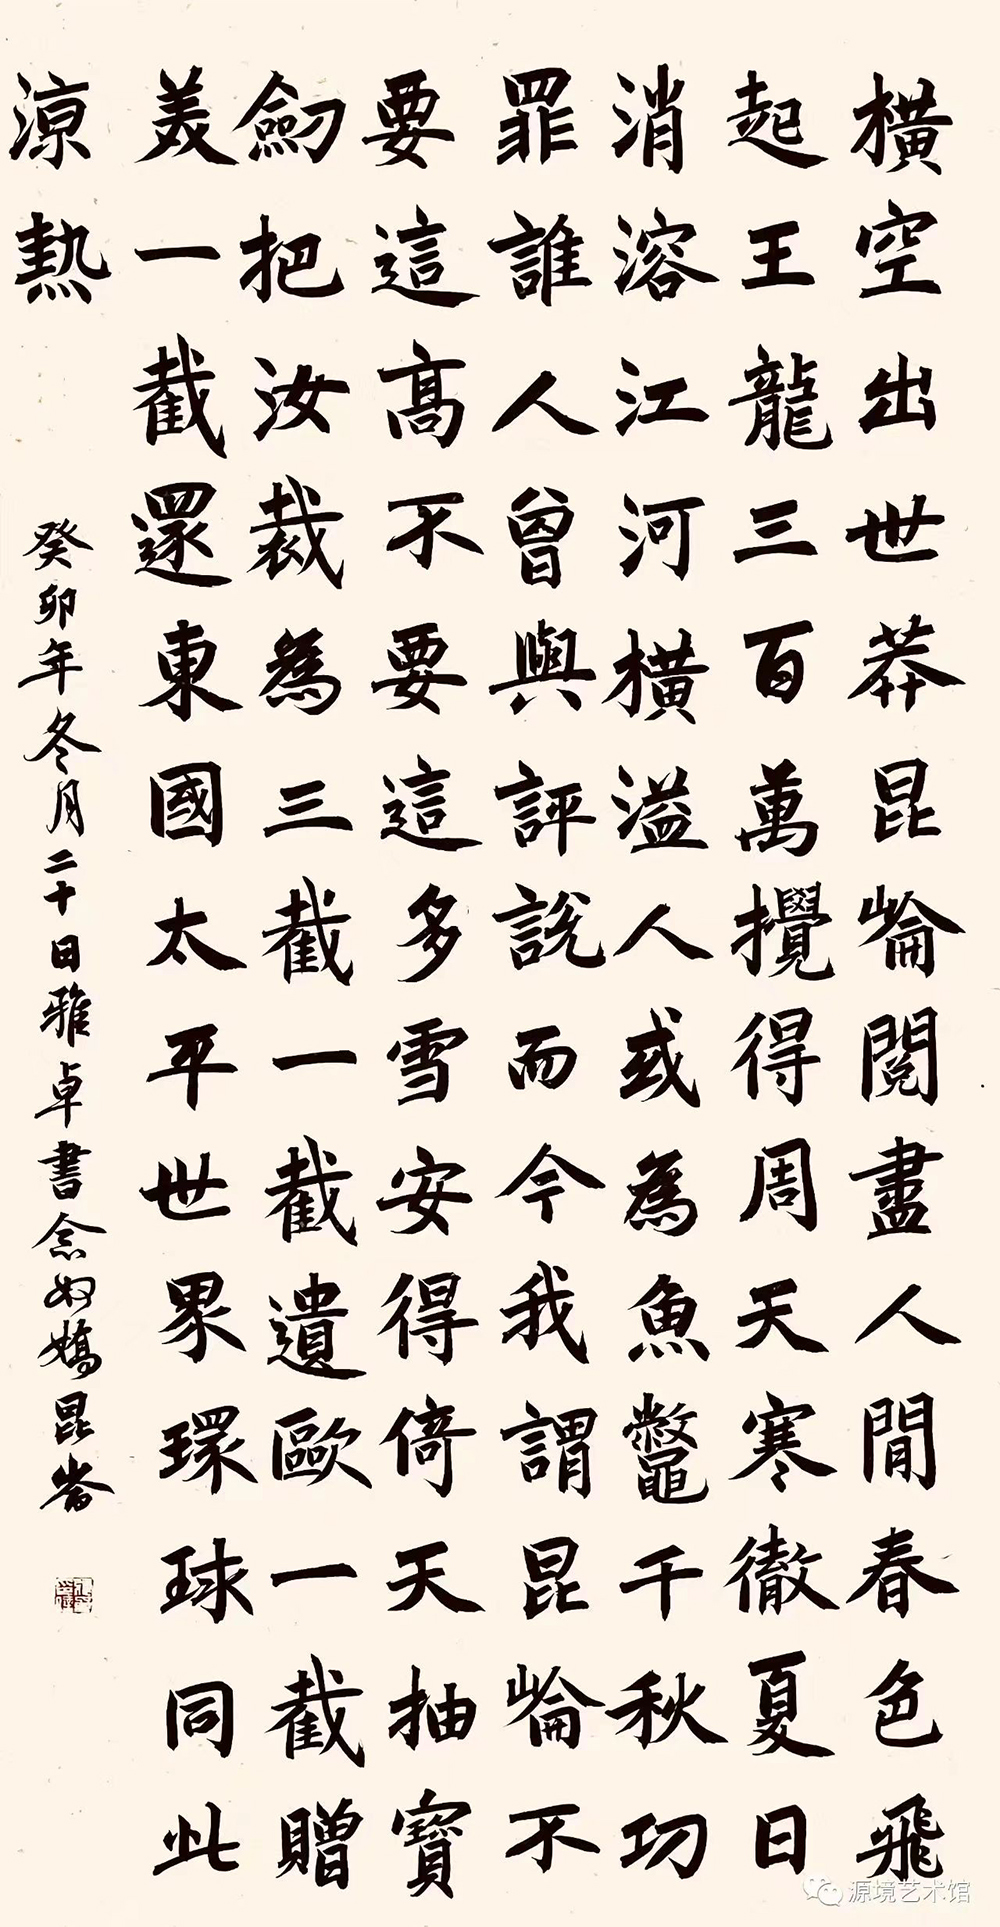 橫空出世莽昆崙閱盡人間春色飛
起王龍三百萬攪得周天寒徹夏日
消溶江河橫溢人或為魚鼈千秋功
罪誰人曾與評說而今我謂昆崙不
要這高不要這多雪安得倚天抽寶
劒把汝裁為三截一截遺歐一截贈
美一截還東國太平世界環球同此
涼熱
癸卯年冬月二十日雅卓書念奴嬌昆崙
源境艺术馆